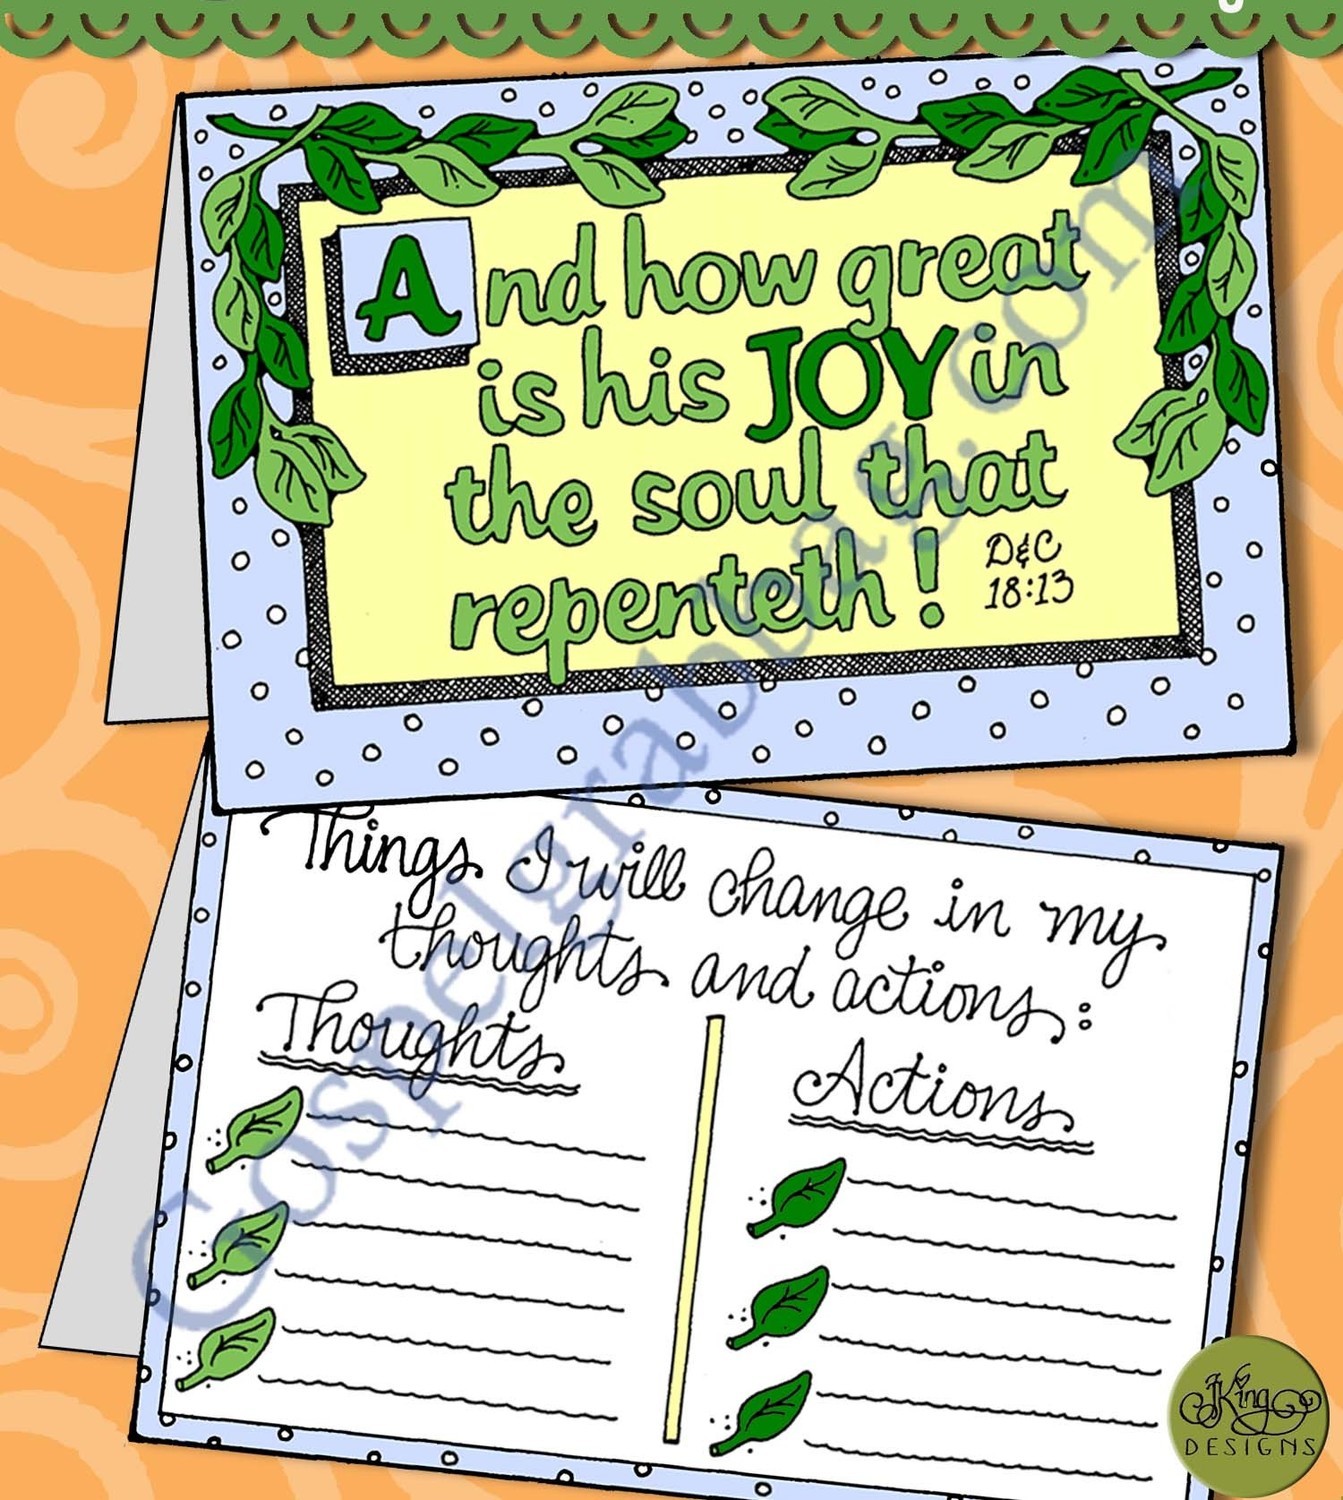 And how great
is his JOY in
the soul that
repenteth!
D&C
18:13
Things I will change in my
thoughts and actions:
Thoughts
Actions
Gospelgrabbag.com
JKing
DESIGNS